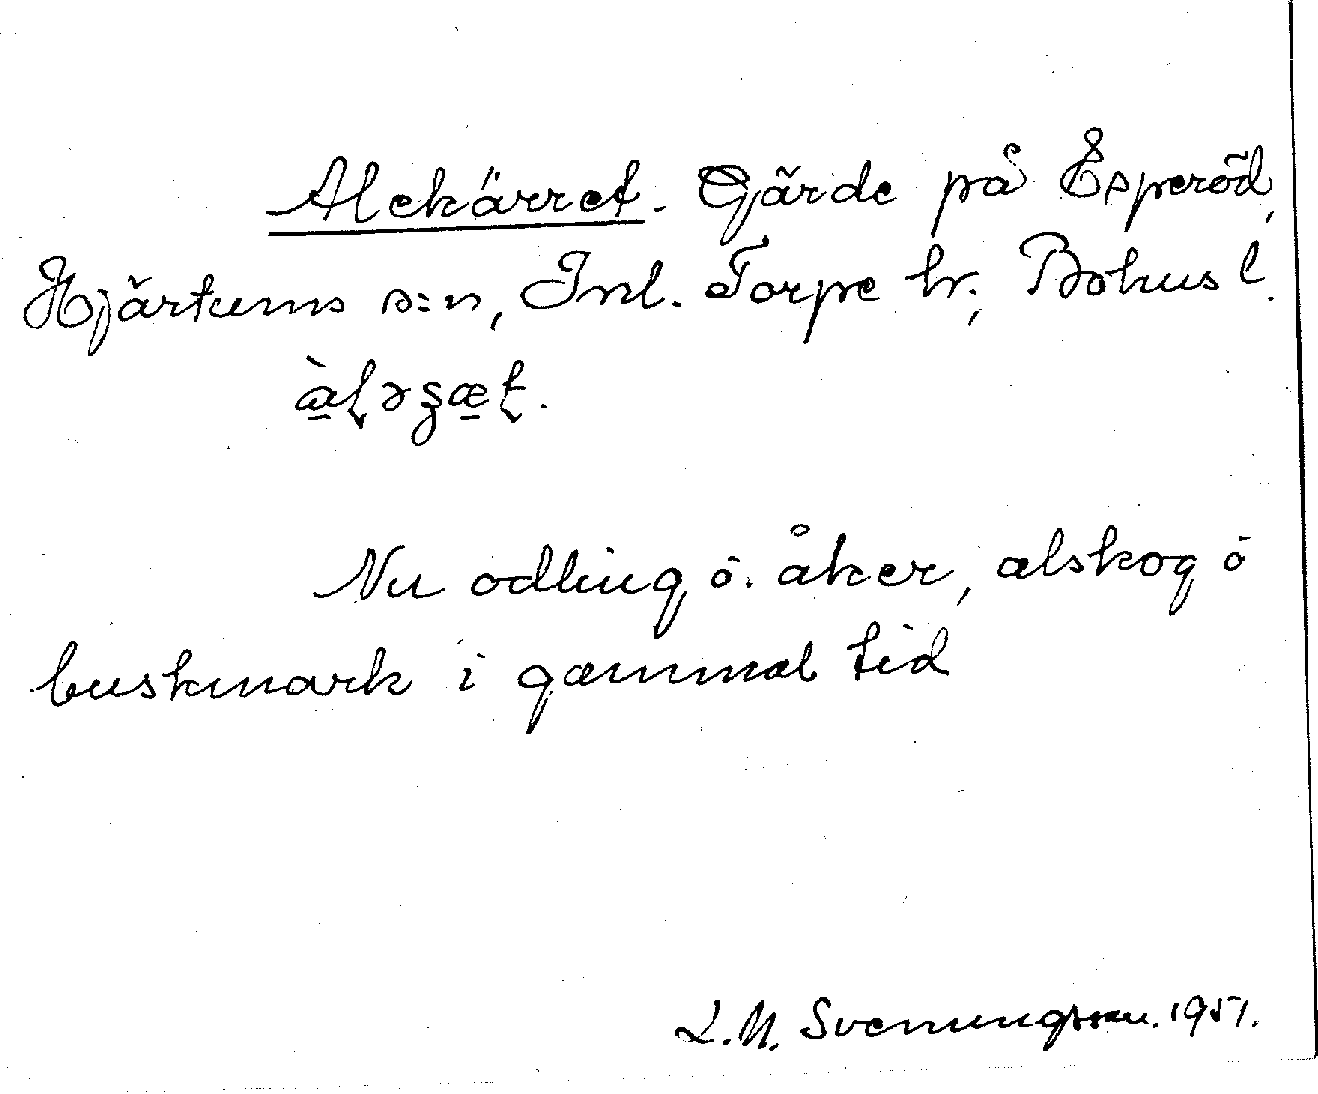 Alekärret. Gärde på Esperöd,
Hjärtums s:n, Inl. Torpe hr, Bohus l.
Nu odling o. åker, alskog o
buskmark i gammal tid
L.M. Svenungsson. 1951.